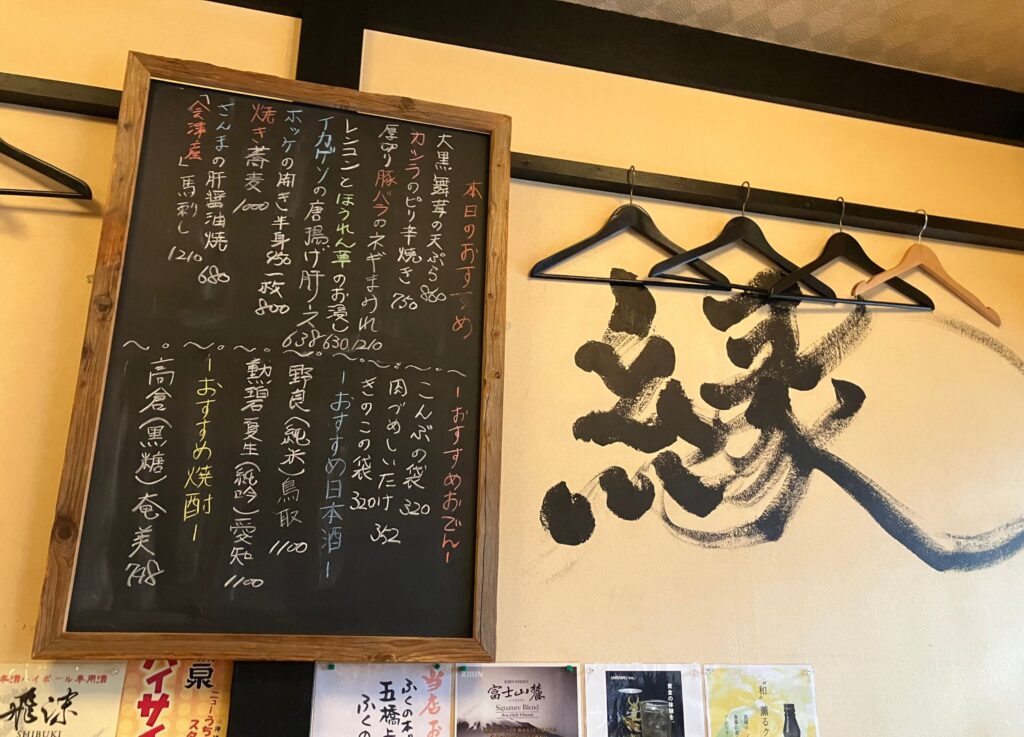 本日のおすすめ
大黒舞茸の天ぷら 860
カシラのピリ辛焼き 750
厚切り豚バラのネギまみれ 1210
レンコンとほうれん草のお浸し 630
イカゲソの唐揚げ肝ソース 638
ホッケの開き半身450一枚800
焼き蕎麦 1000
さんまの肝醤油焼 680
「会津産」馬刺し 1210
ーおすすめおでんー
こんぶの袋 320
肉づめしいたけ 352
きのこの袋 320
ーおすすめ日本酒ー
野良(純米)鳥取 1100
勲碧夏生(純吟)愛知 1100
ーおすすめ焼酎ー
高倉(黒糖)奄美 748
縁
本酒ハイボール専用酒
飛沫
SHIBUKI
ハイサイ
ニューうち
当店お
ふくの木
五橋上
ふくの
KIRIN
富士山麓
Signature Blend
Non-Chill Filtered
黄金の体験を、
"和"薫るク